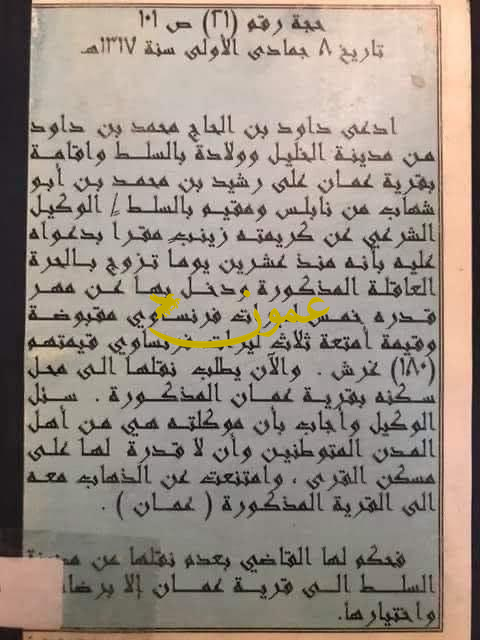 حجة رقم (٢١) ص ١٠١
تاريخ ٨ جمادى الأولى سنة ١٣١٧هـ
ادعى داود بن الحاج محمد بن داود
من مدينة الخليل وولادة بالسلط واقامة
بقرية عمان على رشيد بن محمد بن أبو
شهاب من نابلس ومقيم بالسلط / الوكيل
الشرعي عن كريمته زينب مقراً بدعواه
عليه بأنه منذ عشرين يوما تزوج بالحرة
العاقلة المذكورة ودخل بها عن مهر
قدره خمس فرنساوي مقبوضة
وقيمة أمتعة ثلاث ليرات فرنساوي قيمتهم
(١٨٠) غرش . والآن يطلب نقلها الى محل
سكنه بقرية عمان المذكورة . سئل
الوكيل وأجاب بأن موكلته هي من أهل
المدن المتوطنين وأن لا قدرة لها على
مسكن القرى ، وامتنعت عن الذهاب معه
الى القرية المذكورة ( عمان ) .
فحكم لها القاضي بعدم نقلها عن مدينة
السلط الى قرية عمان إلا برضاها
واختيارها.
عمون